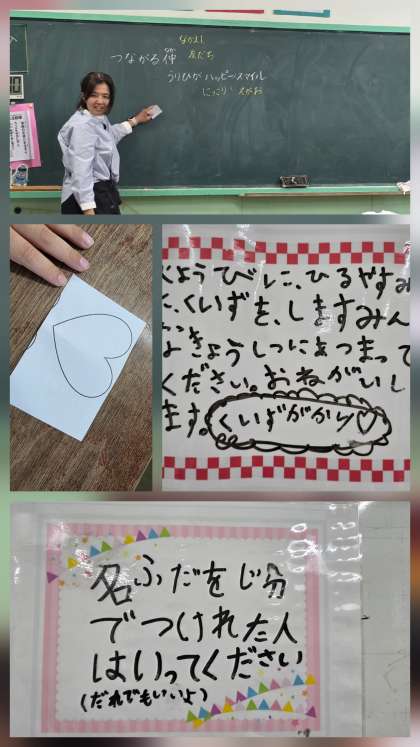 なかよし
つながる仲 友だち
うりひが ハッピースマイル
にっこり えがお
くようびに、ひるやすみ
に、くいずを、しますみん
なきょうしつにあつまって
ください。おねがいし
ます。くいずがかり♡
名ふだをじ分
でつけれた人
はいってください
(だれでもいいよ)